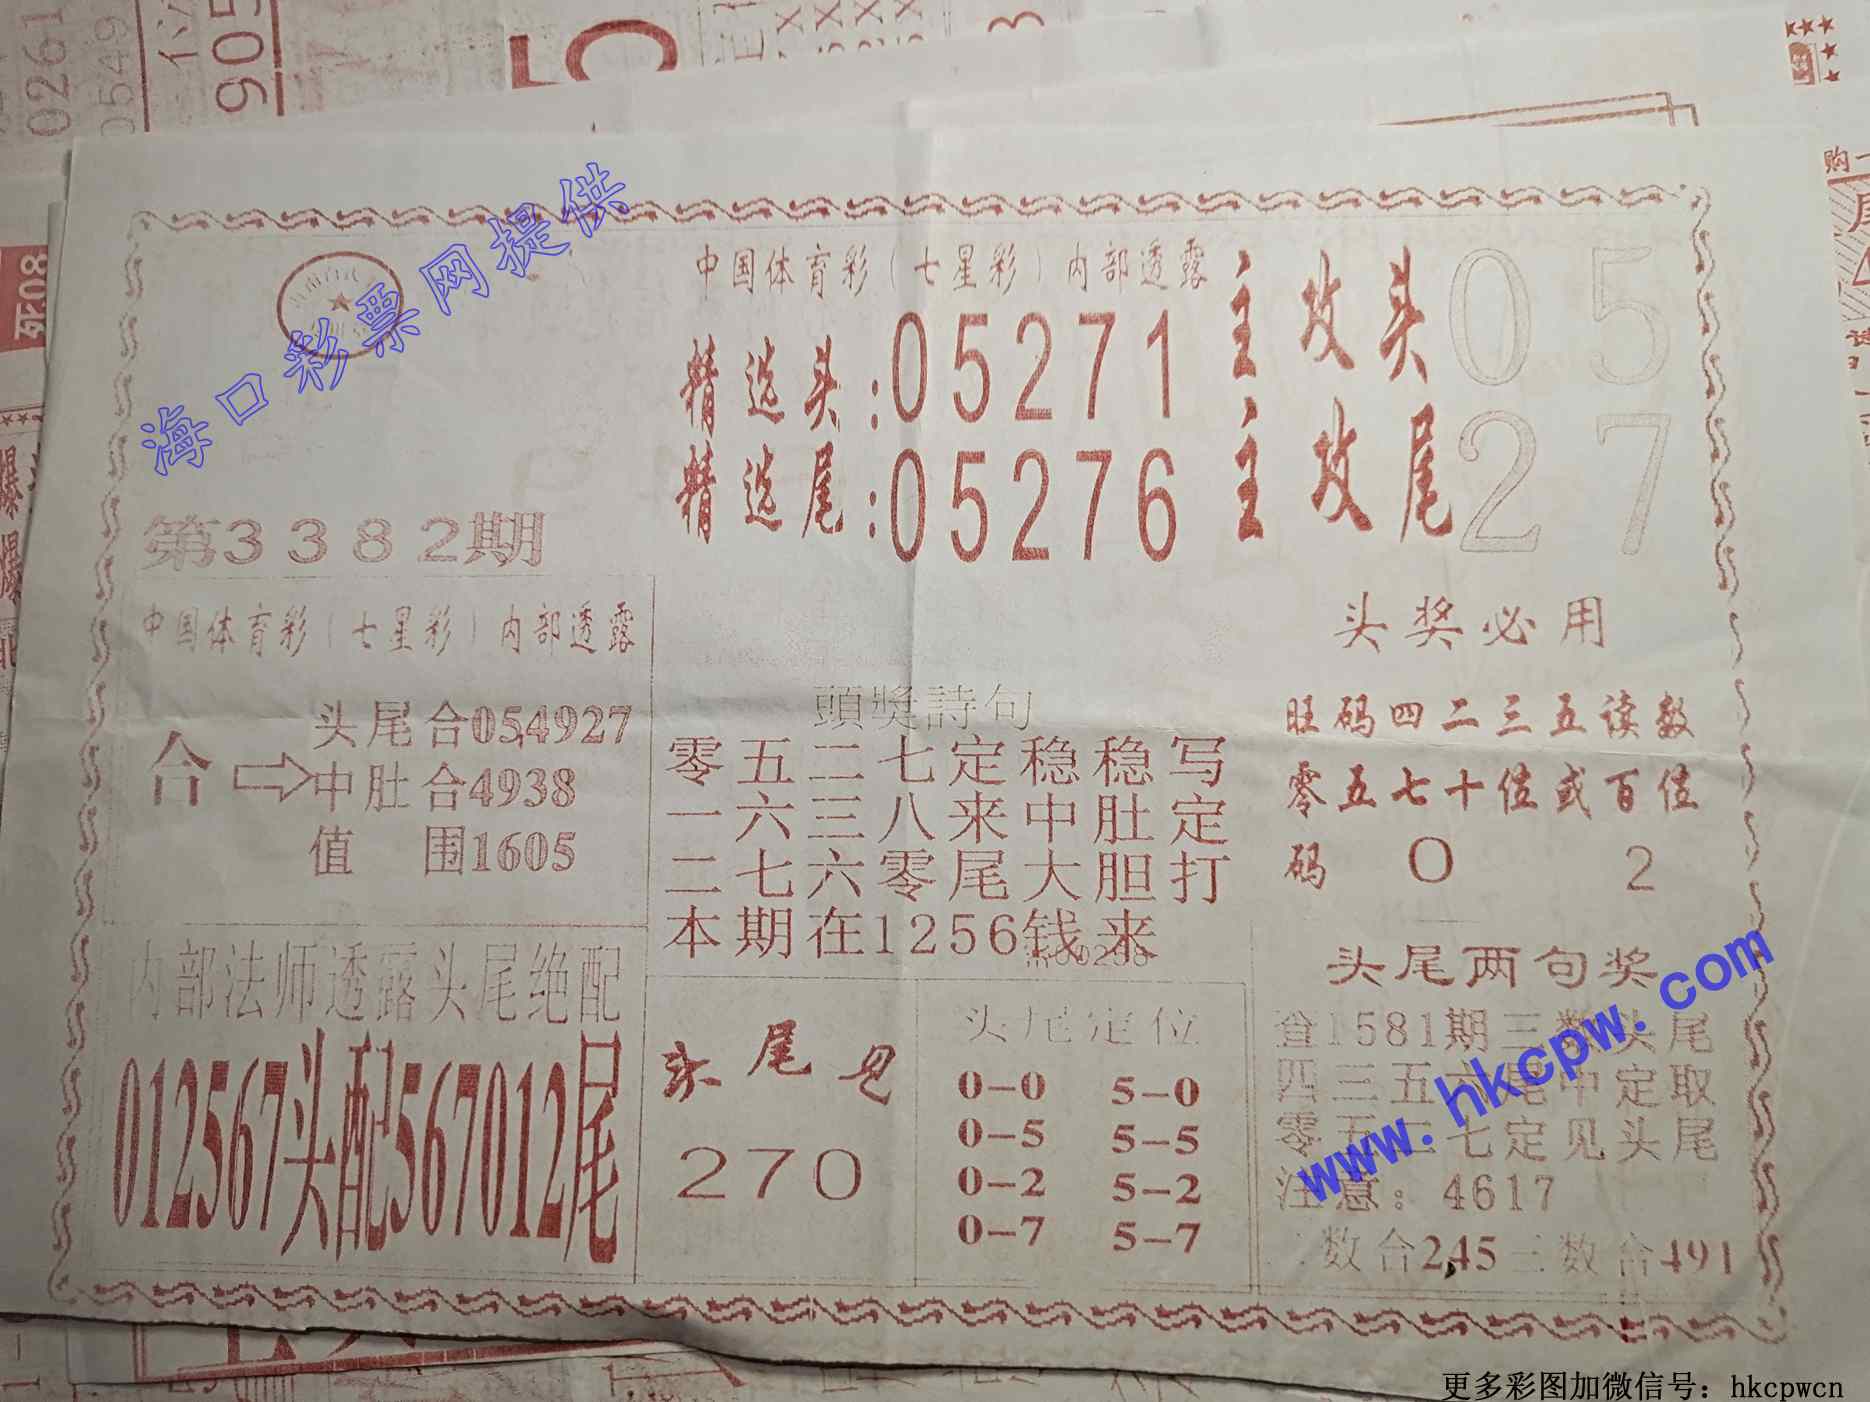 海口彩票网提供
中国体育彩（七星彩）内部透露
精选头:05271
精选尾:05276
主攻头05
主攻尾27
第3382期
中国体育彩（七星彩）内部透露
合⇨
头尾合054927
中肚合4938
值 围1605
内部法师透露头尾绝配
012567头配567012尾
頭獎詩句
零五二七定稳稳写
一六三八来中肚定
二七六零尾大胆打
本期在1256钱来
头尾见
270
头尾定位
0-0 5-0
0-5 5-5
0-2 5-2
0-7 5-7
头奖必用
旺码四二三五读数
零五七十位或百位
码 0 2
头尾两句奖
查1581期三数头尾
四三五六尾中定取
零五二七定见头尾
注意：4617
二数合245三数合491
www.hkcpw.com
更多彩图加微信号：hkcpwcn
0261
0549
905
死.08
购一